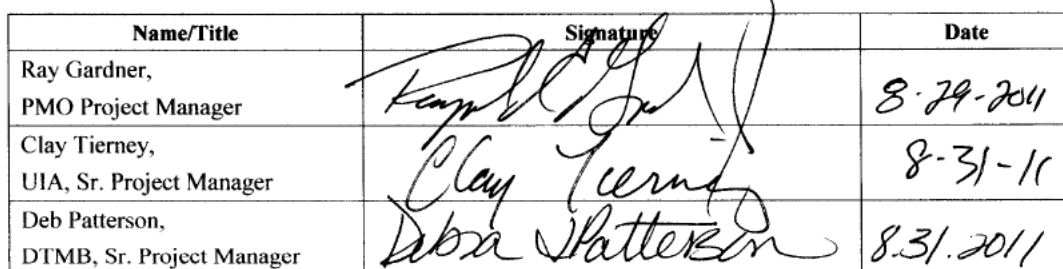 Name/Title Signature Date
Ray Gardner,
PMO Project Manager
8-29-2011
Clay Tierney,
UIA, Sr. Project Manager
Clay Tierney 8-31-11
Deb Patterson,
DTMB, Sr. Project Manager
Debra J Patterson 8.31.2011